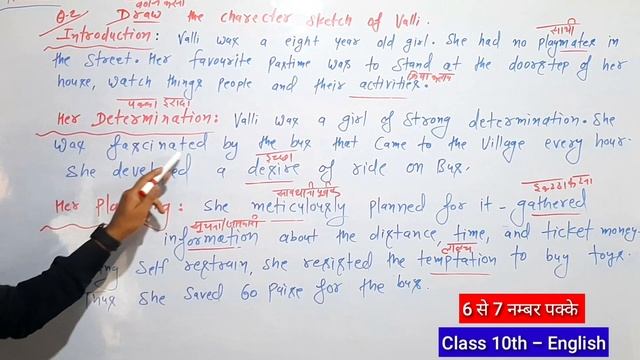 वर्णन करना
Q.2 Draw the charecter sketch of Valli.
साथी
Introduction: Valli was a eight year old girl. She had no playmates in
the street. Her favourite pastime was to stand at the doorstep of her
क्रिया कलाप
house, watch things people and their activities.
पक्का इरादा
Her Determination: Valli was a girl of strong determination. She
was fascinated by the bus that came to the village every hour.
इच्छा
She develped a desire of ride on Bus.
सावधानी पूर्वक इकट्ठा करना
Her Planning: She meticulously planned for it - gathered
सूचना/जानकारी
information about the distance, time, and ticket money.
लालच
Self restrain, she resisted the temptation to buy toys.
Thus she saved 60 paise for the bus.
6 से 7 नम्बर पक्के
Class 10th – English